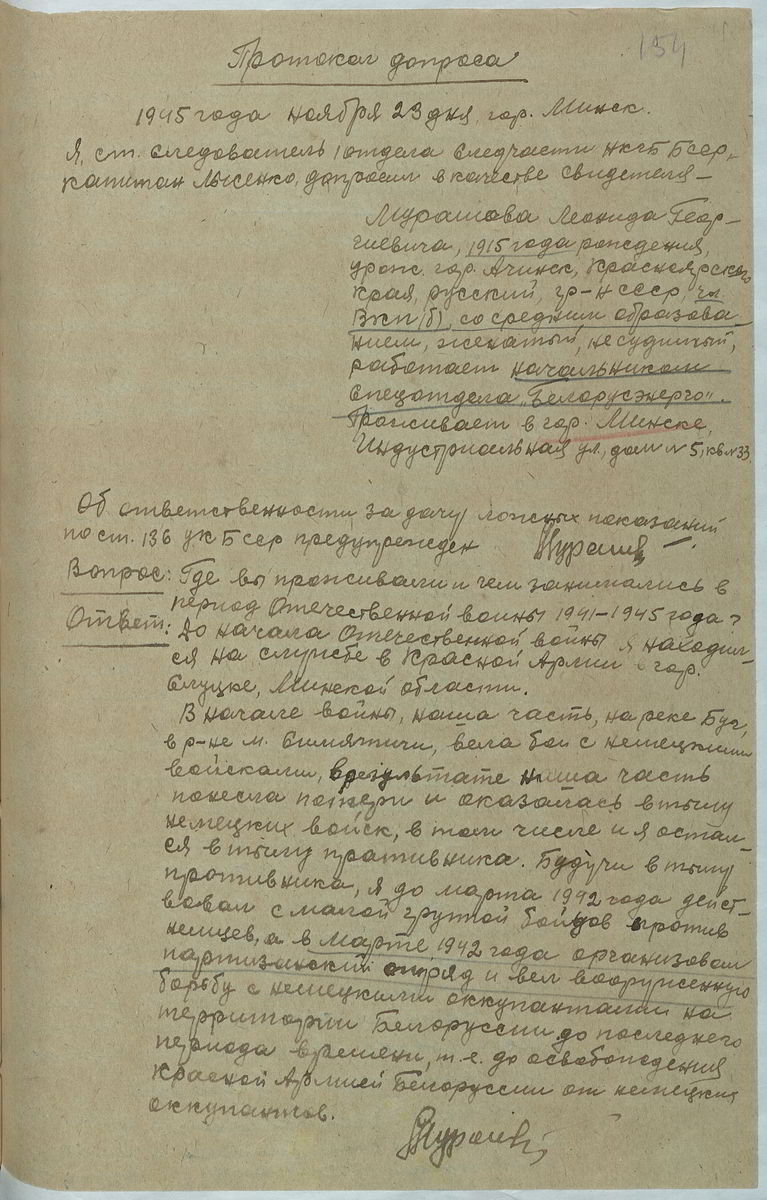 154
Протокол допроса
1945 года ноября 23 дня, гор. Минск.
Я, ст. следователь 1 отдела следчасти НКГБ БССР,-
капитан Лысенко, допросил в качестве свидетеля –
Мурашова Леонида Геор-
гиевича, 1915 года рождения,
урож. гор. Ачинск, Красноярского
края, русский, гр-н СССР, чл.
ВКП(б), со средним образова-
нием, женатый, несудимый,
работает начальником
спецотдела „Белорусэнерго".
Проживает в гор. Минске,
Индустриальная ул., дом № 5, кв № 33.
Об ответственности за дачу ложных показаний
по ст. 136 УК БССР предупрежден
Вопрос: Где вы проживали и чем занимались в
период Отечественной войны 1941–1945 года?
Ответ: До начала Отечественной войны я находил-
ся на службе в Красной Армии в гор.
Слуцке, Минской области.
В начале войны, наша часть, на реке Буг,
в р-не м. Симятичи, вела бой с немецкими
войсками, в результате наша часть
понесла потери и оказалась в тылу
немецких войск, в том числе и я остал-
ся в тылу противника. Будучи в тылу
противника, я до марта 1942 года дейст-
вовал с малой группой бойцов против
немцев, а в марте 1942 года организовал
партизанский отряд и вел вооруженную
борьбу с немецкими оккупантами на
территории Белоруссии до последнего
периода времени, т.е. до освобождения
Красной Армией Белоруссии от немецких
оккупантов.